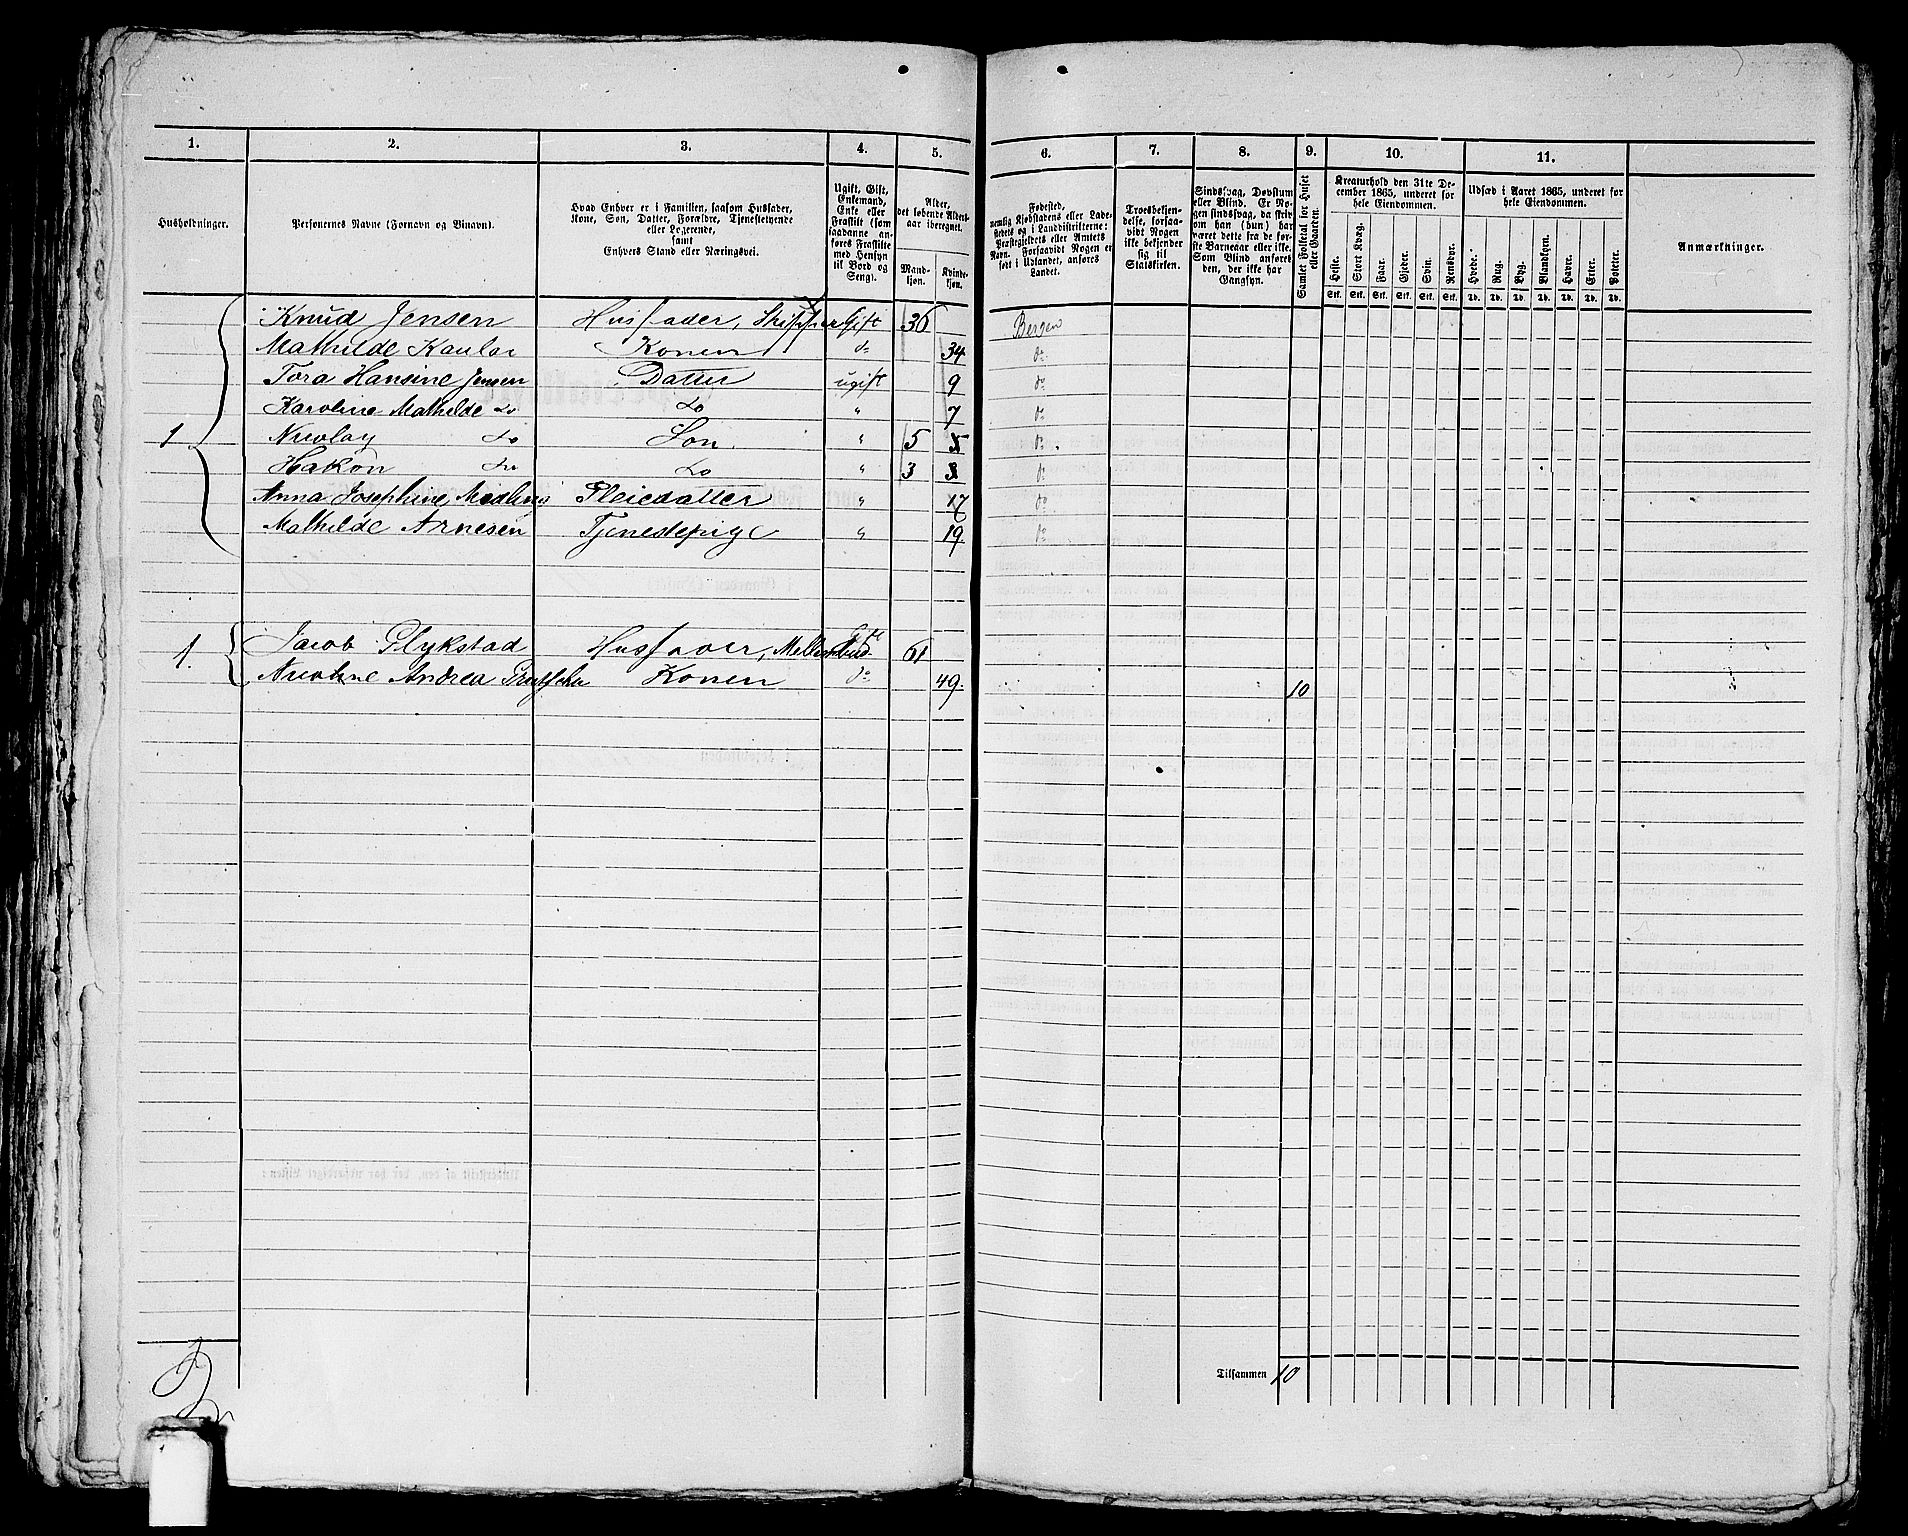 1.
2.
3.
4.
5.
6.
7.
8.
9.
10.
11.
Husholdninger.
Personernes Navne (Fornavn og Binavn).
Hvad Enhver er i Familien, saasom Husfader,
Kone, Søn, Datter, Forældre, Tjenestetyende
eller Logerende,
samt
Enhvers Stand eller Næringsvei.
Ugift, Gift,
Enkemand,
Enke eller
Fraskilt (som
saadanne an-
føres Fraskilte
med Hensyn
til Bord og
Seng).
Alder,
det løbende Alders-
aar iberegnet.
Mand-
kjøn.
Kvinde-
kjøn.
Fødested,
nemlig Kjøbstadens eller Lade-
stedets og i Landdistrikterne:
Præstegjeldets eller Amtets
Navn. Forsaavidt Nogen er
født i Udlandet, anføres
Landet.
Troesbekjen-
delse, forsaa-
vidt Nogen
ikke bekjender
sig til
Statskirken.
Sindssvag, Døvstum
eller Blind. Er No-
gen sindssvag, da skriv
om han (hun) har
været dette fra de før-
ste Barneaar eller ikke.
Som Blind anføres
den, der ikke har
Gangsyn.
Samlet Folketal for Huset
eller Gaarden.
Kreaturhold den 31te De-
cember 1865, underet for
hele Eiendommen.
Heste.
Stort Kvæg.
Faar.
Gjeder.
Svin.
Rensdyr.
Stk. Stk. Stk. Stk. Stk. Stk.
Udsæd i Aaret 1865, underet for
hele Eiendommen.
Hvede.
Rug.
Byg.
Blandkorn.
Havre.
Erter.
Poteter.
Td. Td. Td. Td. Td. Td. Td.
Anmærkninger.
Knud Jensen Husfader, Skipper Gift 36 Bergen
Mathilde Konen do 34 do
Tora Hansine Jensen Datter ugift 9 do
Karoline Mathilde do do " 7 do
1 Nicolay do Søn " 5 5 do
Hakon do do " 3 3 do
Anna Josephine Pleiedatter " 17 do
Mathilde Arnesen Tjenestepige " 19 do
1. Jacob Husfader, Gift 61
Andrea Konen do 49. 10
Tilsammen 10